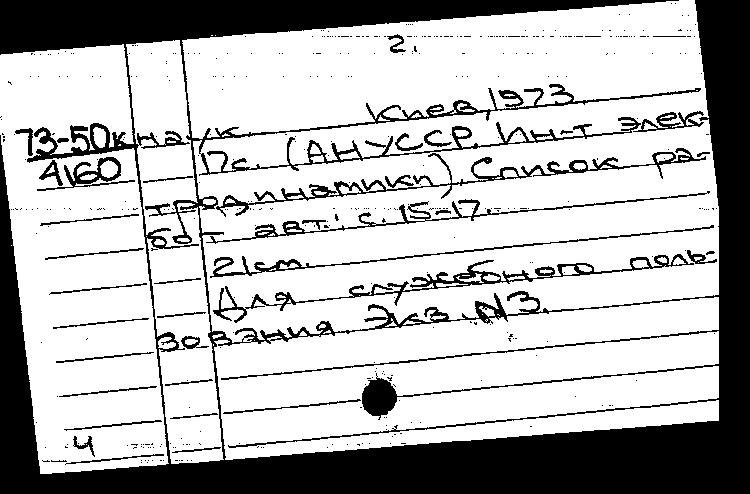 2.
73-50к наук. Киев, 1973.
4160 17с. (АН УССР. Ин-т элек-
тродинамики). Список ра-
бот авт.: с. 15-17.
21см.
Для служебного поль-
зования. Экз. №3.
4